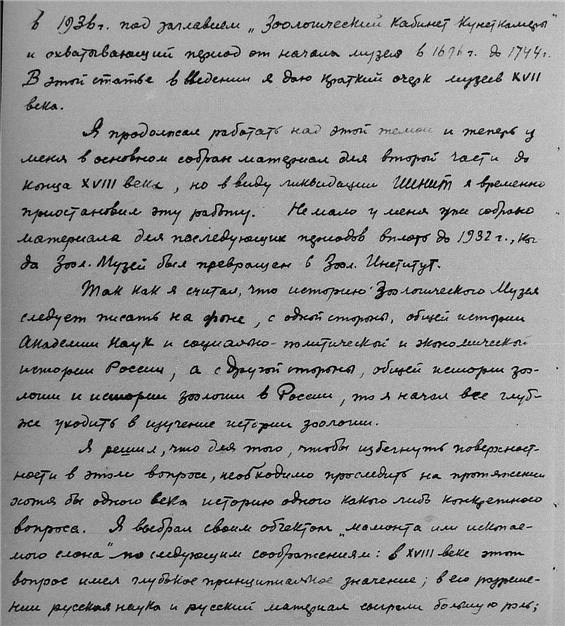 в 1936 г. под заглавием „Зоологический Кабинет Кунсткамеры"
и охватывающий период от начала музея в 1696 г. до 1744 г.
В этой статье в введении я даю краткий очерк музеев XVII
века.
Я продолжал работать над этой темой и теперь у
меня в основном собран материал для второй части до
конца XVIII века, но в виду ликвидации ИИНИТ я временно
приостановил эту работу. Немало у меня уже собрано
материала для последующих периодов вплоть до 1932 г., ког
да Зоол. Музей был превращен в Зоол. Институт.
Так как я считал, что историю Зоологического Музея
следует писать на фоне, с одной стороны, общей истории
Академии Наук и социально-политической и экономической
истории России, а с другой стороны, общей истории зоо-
логии и истории зоологии в России, то я начал все глуб-
же уходить в изучение истории зоологии.
Я решил, что для того, чтобы избегнуть поверхност-
ности в этом вопросе, необходимо проследить на протяжении
хотя бы одного века историю одного какого либо конкретного
вопроса. Я выбрал своим объектом „мамонта или ископае-
мого слона" по следующим соображениям: в XVIII веке этот
вопрос имел глубокое принципиальное значение; в его разреше-
нии русская наука и русский материал сыграли большую роль;